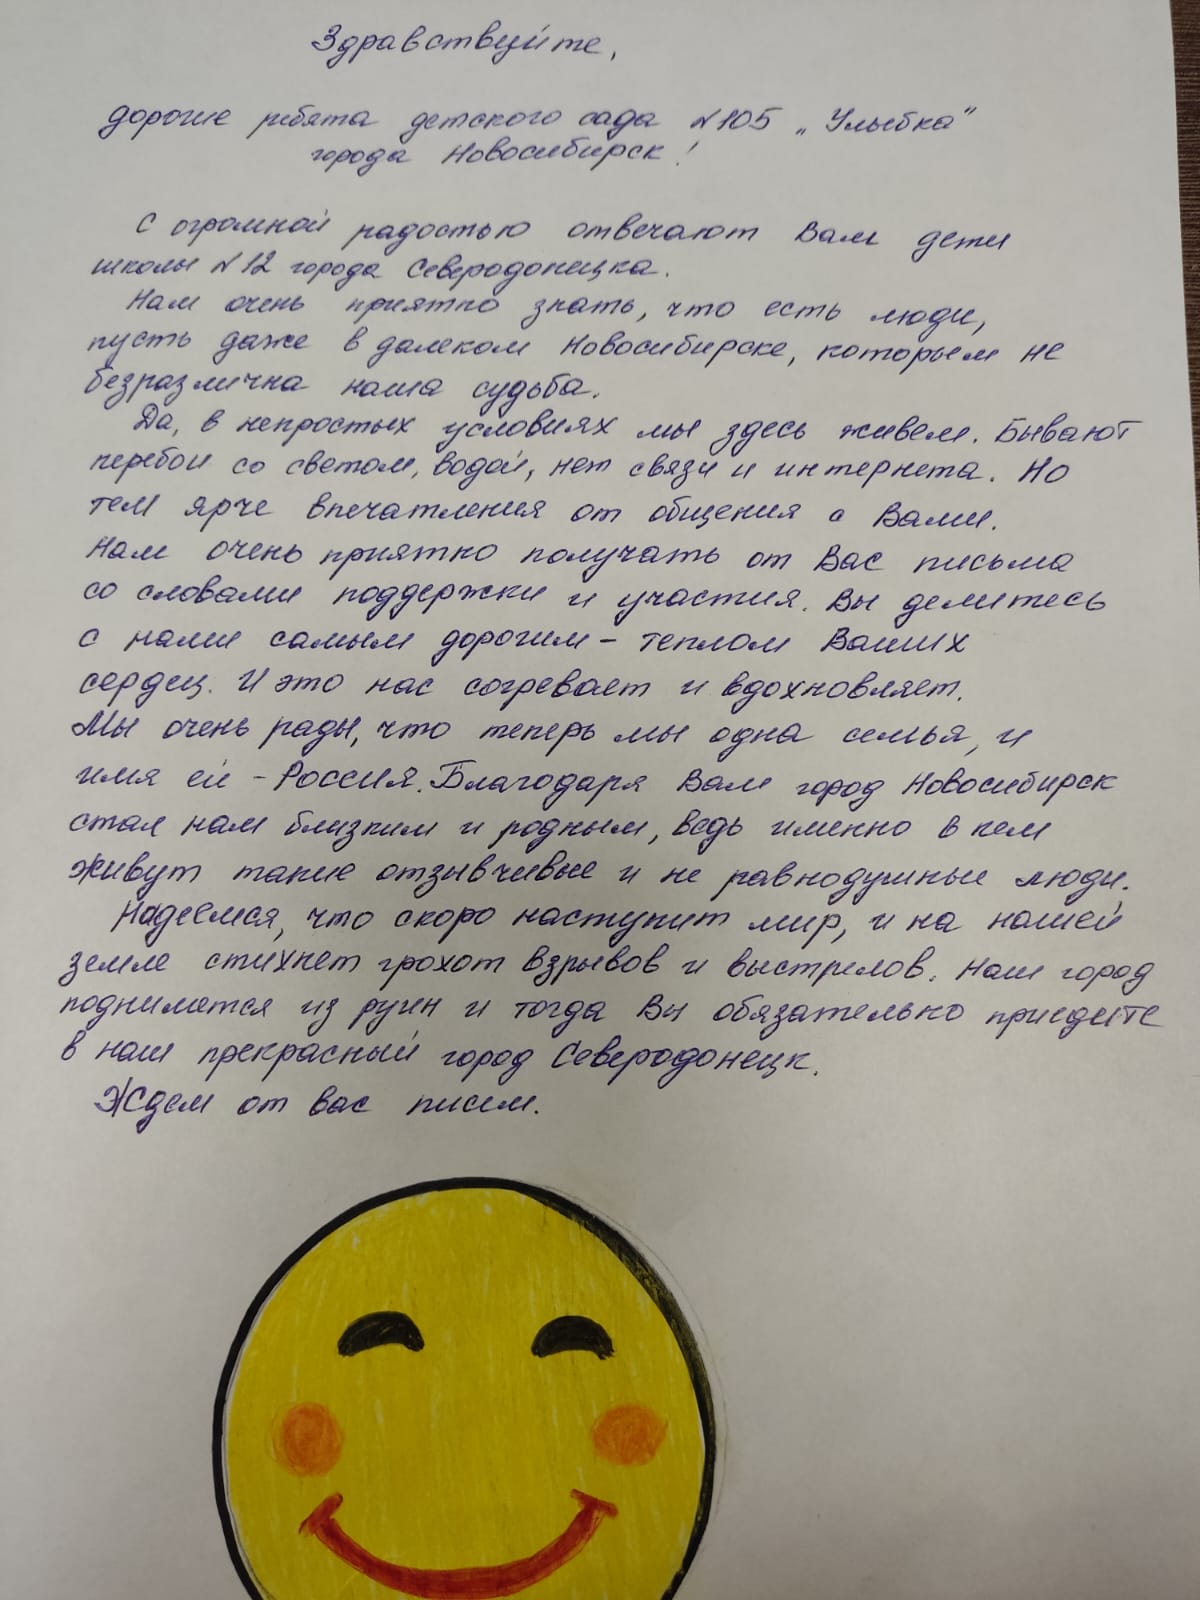 Здравствуйте,
дорогие ребята детского сада №105 „Улыбка"
города Новосибирск!
С огромной радостью отвечают Вам дети
школы №12 города Северодонецка.
Нам очень приятно знать, что есть люди,
пусть даже в далеком Новосибирске, которым не
безразлична наша судьба.
Да, в непростых условиях мы здесь живем. Бывают
перебои со светом, водой, нет связи и интернета. Но
тем ярче впечатления от общения с Вами.
Нам очень приятно получать от Вас письма
со словами поддержки и участия. Вы делитесь
с нами самым дорогим – теплом Ваших
сердец. И это нас согревает и вдохновляет.
Мы очень рады, что теперь мы одна семья, и
имя ей – Россия. Благодаря Вам город Новосибирск
стал нам близким и родным, ведь именно в нем
живут такие отзывчивые и не равнодушные люди.
Надеемся, что скоро наступит мир, и на нашей
земле стихнет грохот взрывов и выстрелов. Наш город
поднимется из руин и тогда Вы обязательно приедете
в наш прекрасный город Северодонецк.
Ждем от вас писем.